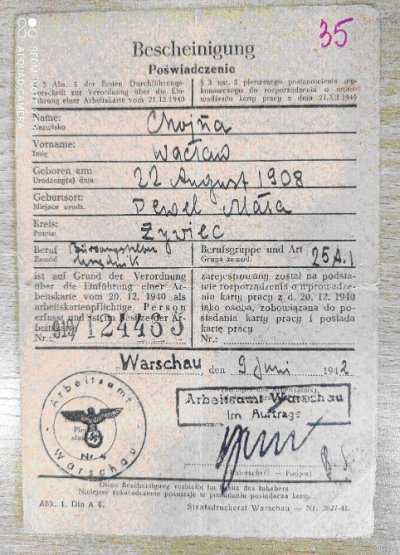 35
Bescheinigung
Poświadczenie
§ 2 Abs. 5 der Ersten Durchführungs-
vorschrift zur Verordnung über die Ein-
führung einer Arbeitskarte vom 21.12 1940
§ 3 ust. 5 pierwszego postanowienia wy-
konawczego do rozporządzenia o wpro-
wadzeniu karty pracy z dnia 21.XII 1940
Name:
Nazwisko
Chojna
Vorname:
Imię
Wacław
Geboren am:
Urodzony(a) dnia
22 August 1908
Geburtsort:
Miejsce urodz.
Pewel Mała
Kreis:
Powiat
Żywiec
Beruf
Zawód
Urzędnik
Berufsgruppe und Art
Grupa zawod.
25A.1
ist auf Grund der Verordnung
über die Einführung einer Ar-
beitskarte vom 20. 12. 1940 als
arbeitskartenpflichtige Person
erfasst und ist im Besitze der Ar-
beitskarte
Nr.:
zarejestrowany został na podsta-
wie rozporządzenia o wprowadze-
niu karty pracy z d. 20. 12. 1940
jako osoba, zobowiązana do po-
siadania karty pracy i posiada
kartę pracy
Nr.:
Warschau, den 2 Juni 1942
Arbeitsamt Warschau
Im Auftrage
Arbeitsamt
Nr. 4
Warschau
Unterschrift — Podpis
Diese Bescheinigung verbleibt im Besitz des Inhabers
Niniejsze zaświadczenie pozostaje w posiadaniu posiadacza karty.
Abk. 1. Din A 6.
Staatsdruckerei Warschau — Nr. 3627-41.